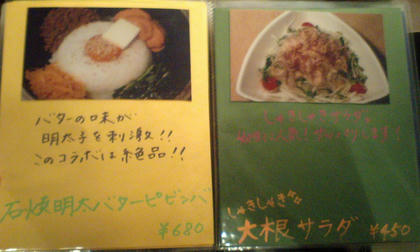 バターの味が
明太子を刺激!!
このコラボは絶品!!
石焼明太バターピビンバ
¥680
しゃきしゃきサラダ。
しゃきしゃきな
大根サラダ ¥450